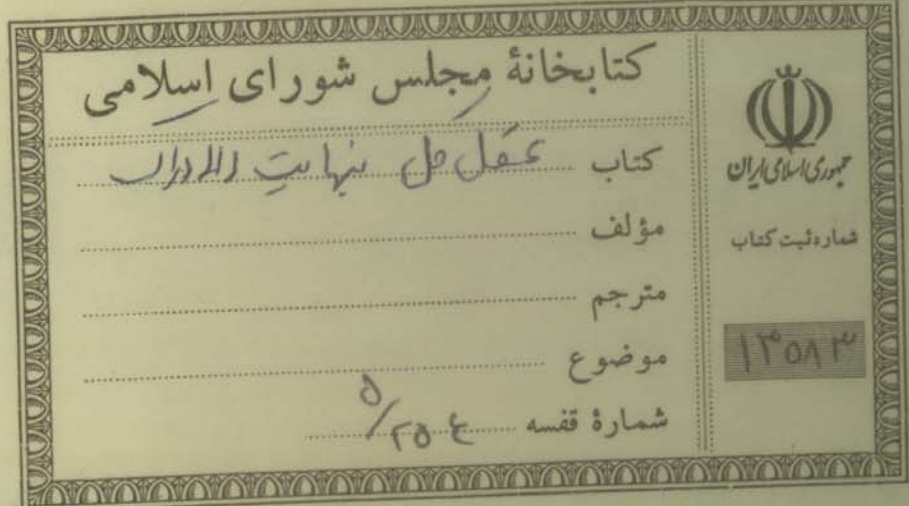 کتابخانهٔ مجلس شورای اسلامی
کتاب حل نهایت
مؤلف
مترجم
موضوع
شمارهٔ قفسه
جمهوری اسلامی ایران
شماره ثبت کتاب